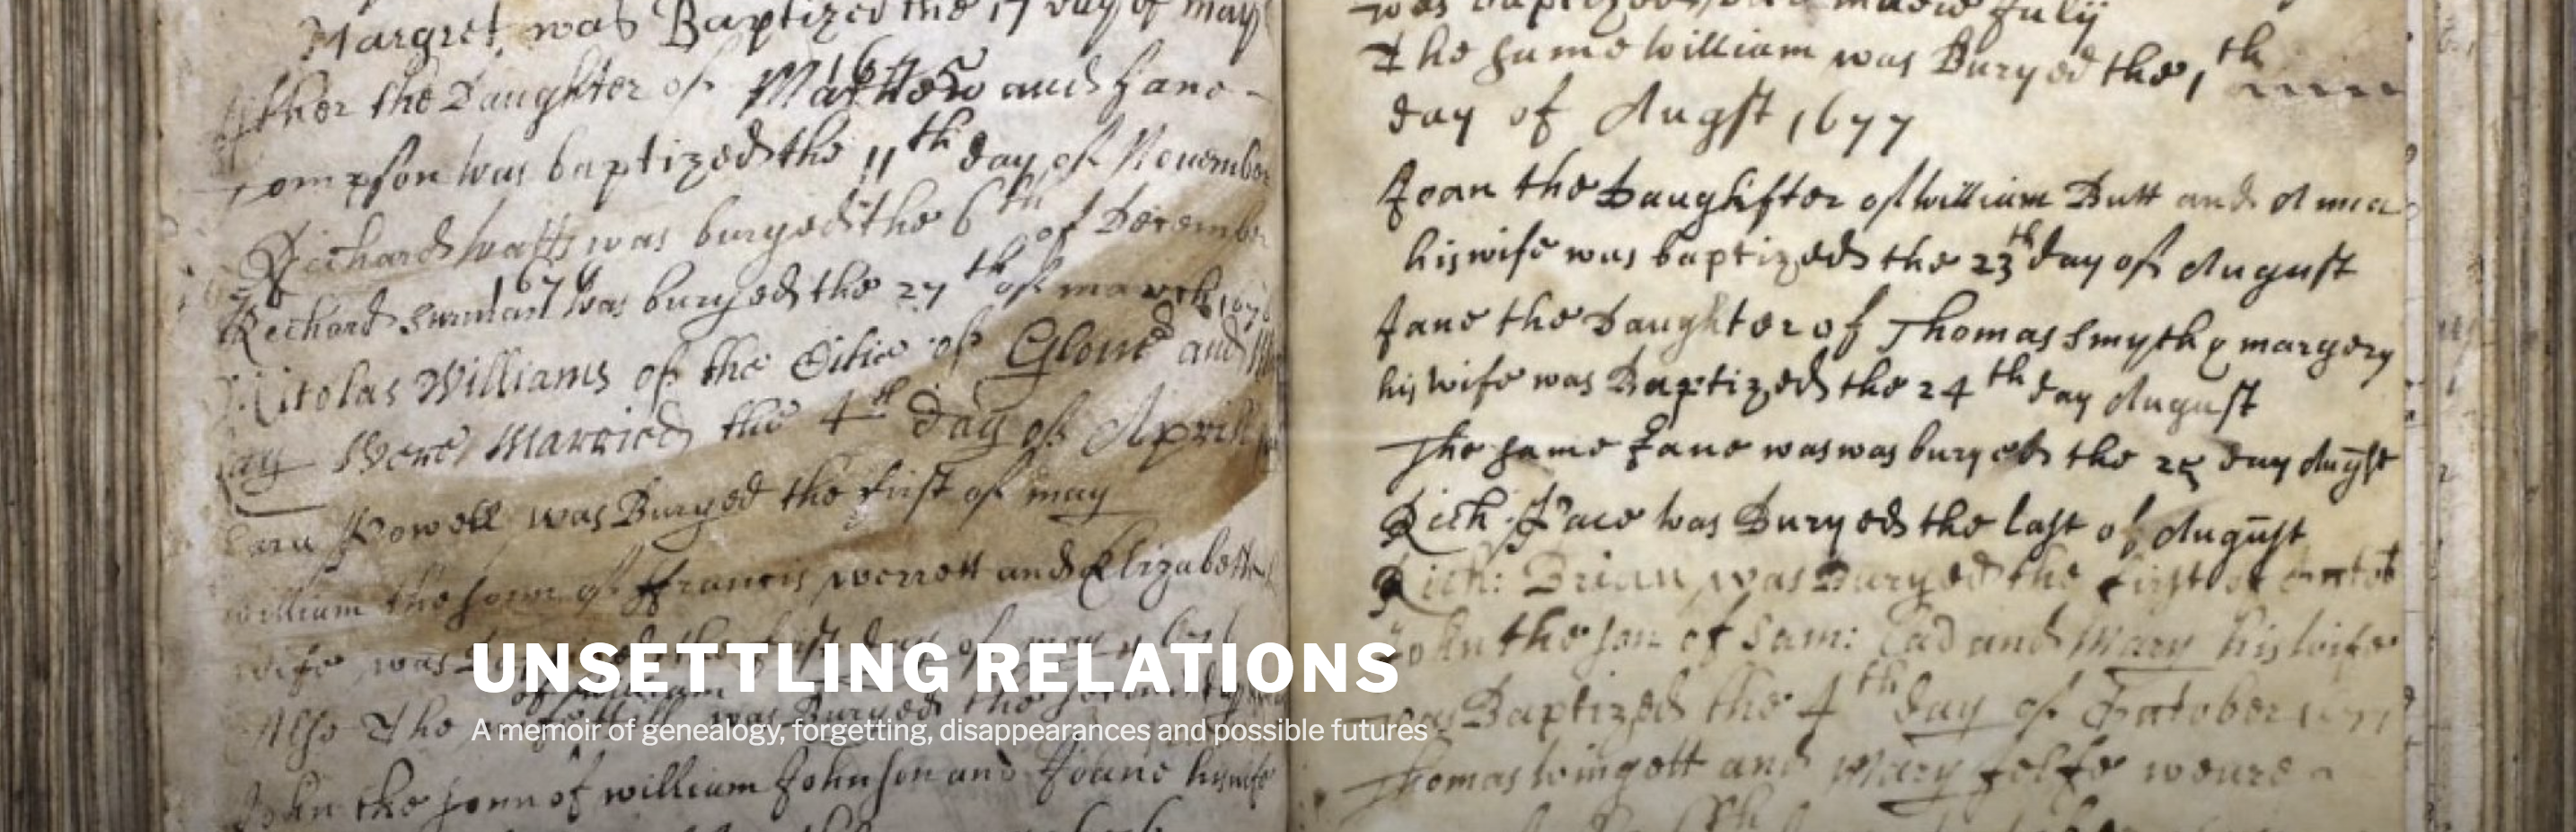 Margret was Baptized the 17 day of may
1675
the Daughter of Mathew and Jane
was baptized the 11th day of Nouember
Richard Watts was buryed the 6th of December
1676
Richard was buryed the 27th of march 1676
Nicolas Williams of the Citie of Glouc and
Were Married the 4th day of Aprill
Powell was Buryed the first of may
william the sonn of ffrancis and Elizabeth
wife was the first day of may
of william
Allso The was Buryed the
John the sonn of william Johnson and Joane his wife
was baptized July
The same william was Buryed the 1th
day of Augst 1677
Joan the Daughfter of william Butt and
his wife was baptized the 23th day of August
Jane the Daughter of Thomas Smyth & margery
his wife was Baptized the 24th day August
The same Jane was was buryed the 25 day Augst
Rich: Pace was Buryed the last of August
Rich: Brian was Buryed the first of
John the son of Sam: and Mary his wife
was Baptized the 4th day of
Thomas wingott and Mary weare
UNSETTLING RELATIONS
A memoir of genealogy, forgetting, disappearances and possible futures